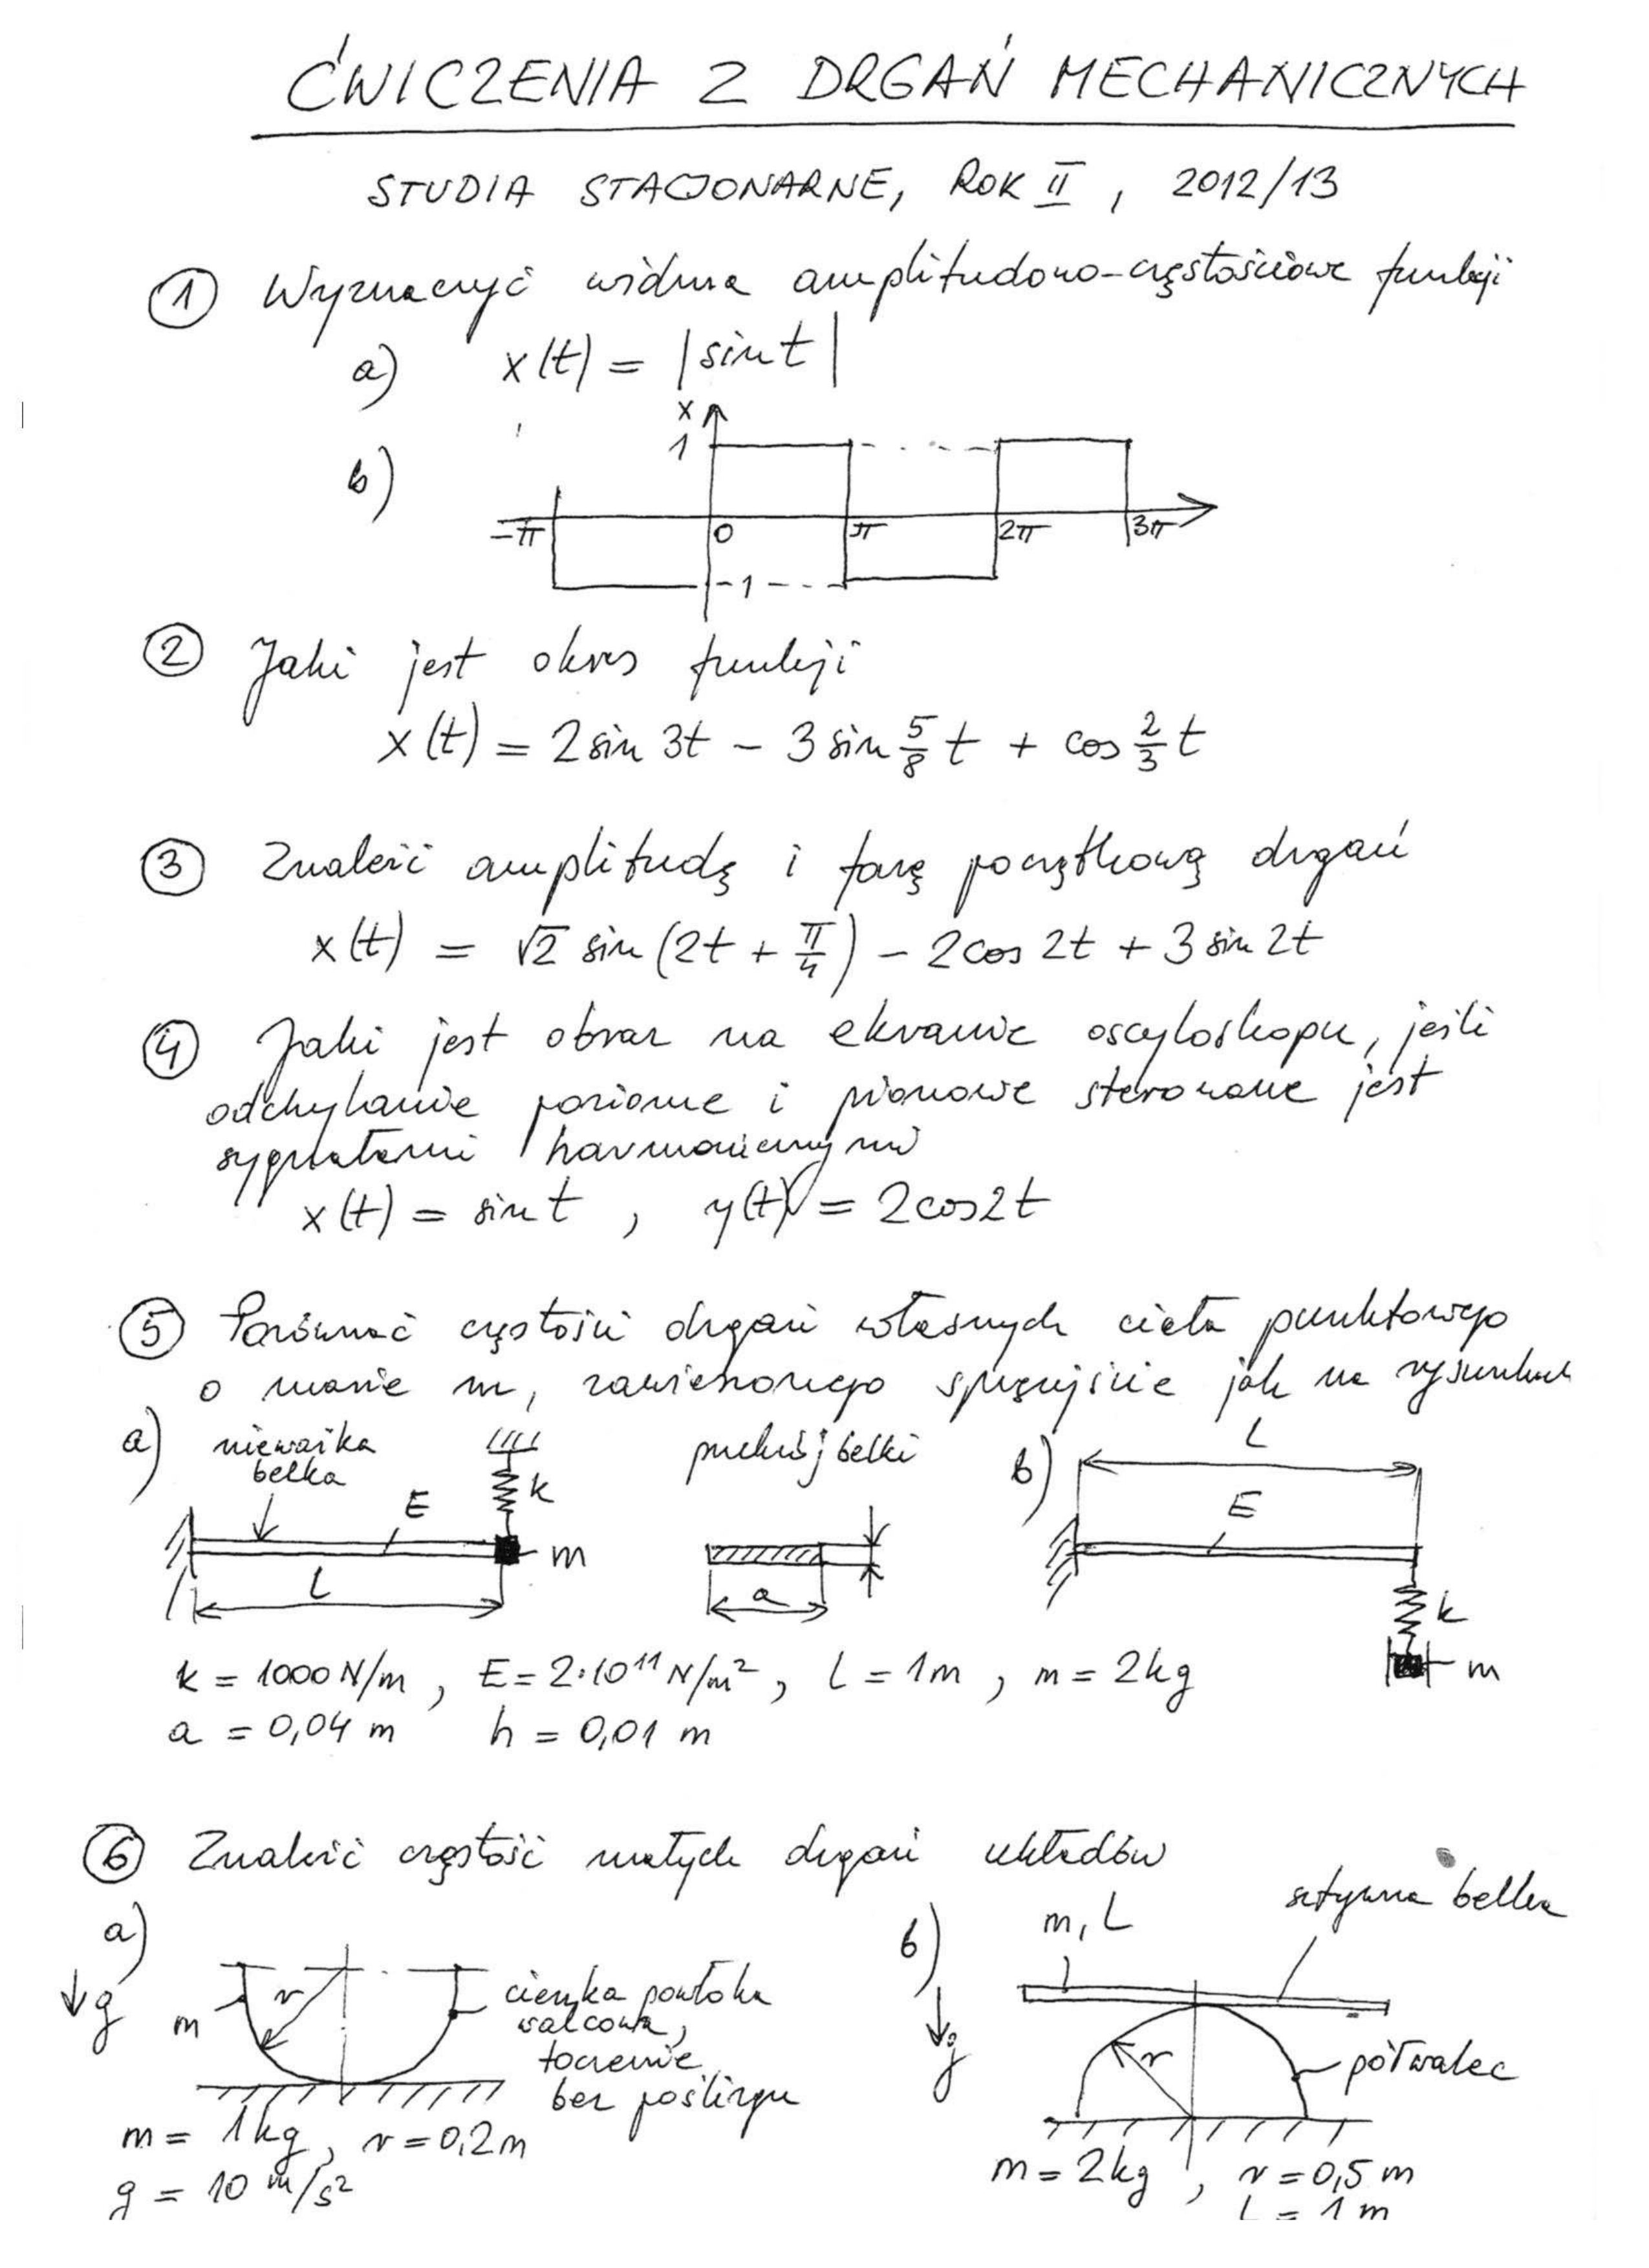 ĆWICZENIA Z DRGAŃ MECHANICZNYCH
STUDIA STACJONARNE, ROK II, 2012/13
① Wyznaczyć widma amplitudowo-częstościowe funkcji
a) x(t) = |sin t|
x
1
b)
-π 0 π 2π 3π
-1
② Jaki jest okres funkcji
x(t) = 2 sin 3t - 3 sin 5/8 t + cos 2/3 t
③ Znaleźć amplitudę i fazę początkową drgań
x(t) = √2 sin (2t + π/4) - 2 cos 2t + 3 sin 2t
④ Jaki jest obraz na ekranie oscyloskopu, jeśli
odchylanie poziome i pionowe sterowane jest
sygnałami harmonicznymi
x(t) = sin t , y(t) = 2 cos 2t
⑤ Porównać częstości drgań własnych ciała punktowego
o masie m, zawieszonego sprężyście jak na rysunkach
a) nieważka
belka
E
k
m
L
przekrój belki
a
b)
L
E
k
m
k = 1000 N/m , E = 2·10¹¹ N/m² , L = 1m , m = 2kg
a = 0,04 m h = 0,01 m
⑥ Znaleźć częstość małych drgań układów
a)
↓g
m
r
cienka powłoka
walcowa,
toczenie
bez poślizgu
m = 1kg, r = 0,2m
g = 10 m/s²
b)
m, L
sztywna belka
↓g
r
półwalec
m = 2kg , r = 0,5 m
L = 1 m